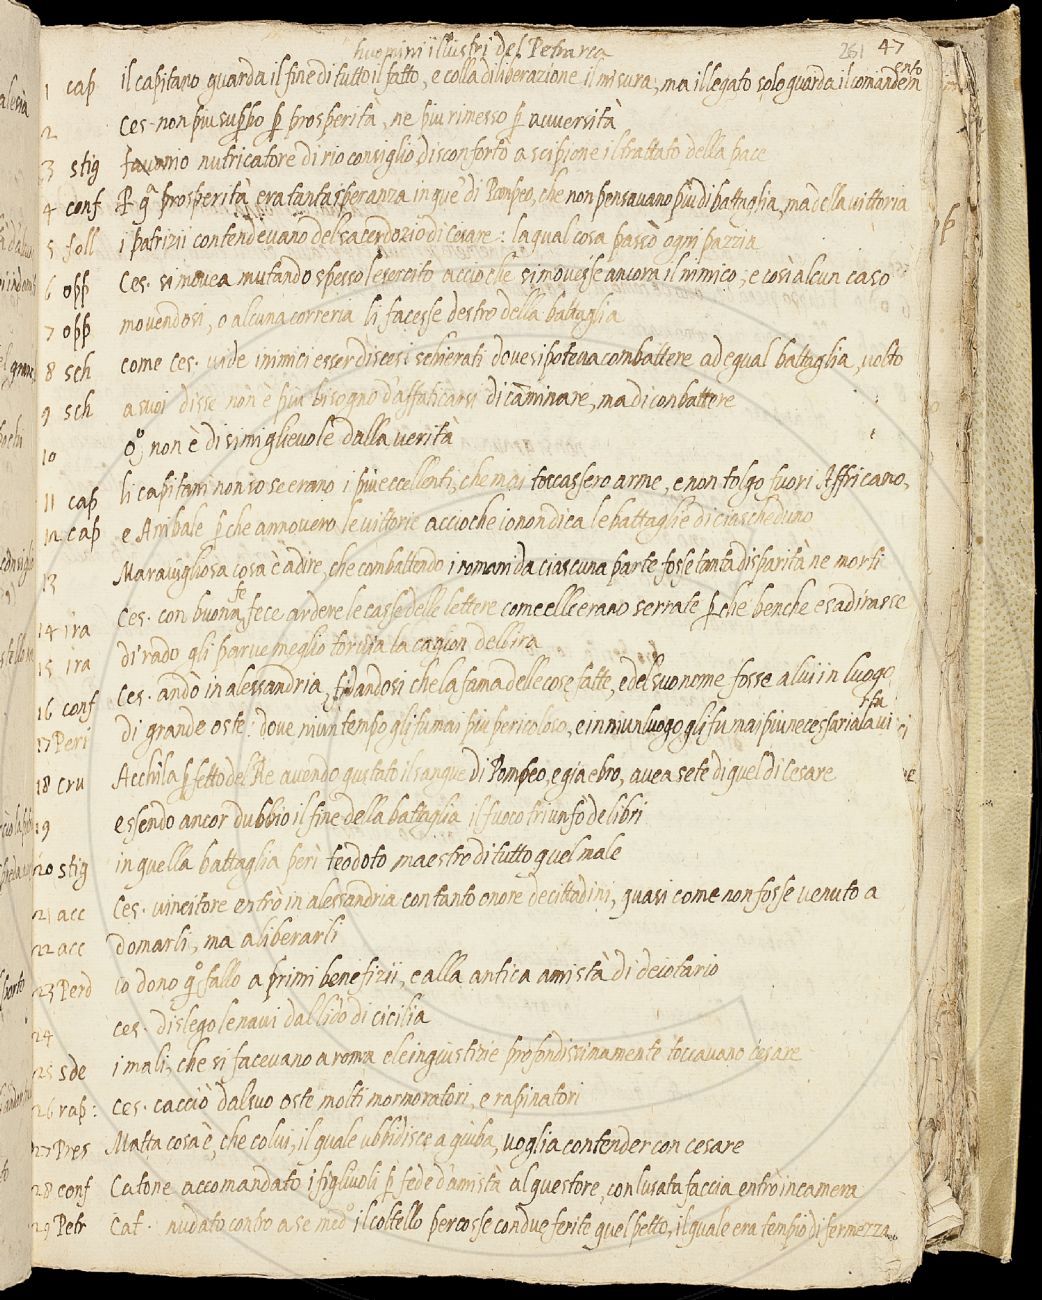 huomini illustri del Petrarca
261 47
1 cap il capitano guarda il fine di tutto il fatto, e colla diliberazione il misura; ma il legato solo guarda il comandam ento
2 Ces. non piu supbo p prosperità, ne piu rimesso p avversità
3 stig favonio nutricatore di rio consiglio disconfortò a scipione il trattato della pace
4 conf P q̃ prosperità era tanta speranza in que di Pompeo, che non pensavano piu di battaglia, ma della vittoria
5 foll i patrizii contendevano del sacerdozio di Cesare: la qual cosa passò ogni pazzia
6 opp Ces. si movea mutando spesso l esercito accioche si movesse ancora il nimico; e così alcun caso
7 opp movendosi, o alcuna correria li facesse destro della battaglia
8 sch come Ces. vide inimici esser discesi schierati dove si poteva combattere ad equal battaglia, volto
9 sch a suoi disse non è piu bisogno d'affaticarsi di cãminare, ma di conbattere
10 non è disimiglievole dalla verità
11 cap li capitani non so se erano i piu eccellenti, che mai toccassero arme, e non tolgo fuori Affricano,
12 cap e Anibale p che annovero le vittorie accioche io non dica le battaglie di ciascheduno
13 Maravigliosa cosa è à dire, che combattendo i romani da ciascuna parte fosse tanta disparità ne morti
14 ira Ces. con buona fe fece ardere le casse delle lettere come elle erano serrate p che benche esadirasse
15 ira di rado gli parve meglio tor via la cagion dell ira
16 conf Ces. andò in alessandria, fidandosi che la fama delle cose fatte, e del suo nome fosse a lui in luogo
17 Peri di grande oste: dove niun tempo gli fu mai piu pericoloso, e in niun luogo gli fu mai piu necessaria la vi rtu
18 cru Acchila pfetto del Re avendo gustato il sangue di Pompeo, e gia ebro, avea sete di quel di Cesare
19 essendo ancor dubbio il fine della battaglia il fuoco triunfò de libri
20 stig in quella battaglia perì teodoto maestro di tutto quel male
21 acc Ces. vincitore entrò in alessandria con tanto onore de cittadini, quasi come non fosse venuto a
22 acc domarli, ma a liberarli
23 Perd io dono q̊ fallo a primi benefizii, e alla antica amistà di deiotario
24 ces. dislego le navi dal lido di cicilia
25 sde i mali, che si facevano a roma e le ingiustizie profondissimamente toccavano cesare
26 rap: Ces. cacciò dal suo oste molti mormoratori, e rapinatori
27 Pres Matta cosa è, che colui, il quale ubbidisce a giuba, voglia contender con cesare
28 conf Catone accomandato i figliuoli p fede d'amistà al questore, con l usata faccia entrò in camera
29 Petr Cat. nudato contro a se med.o il coltello percosse con due ferite quel petto, il quale era tempio di fermezza